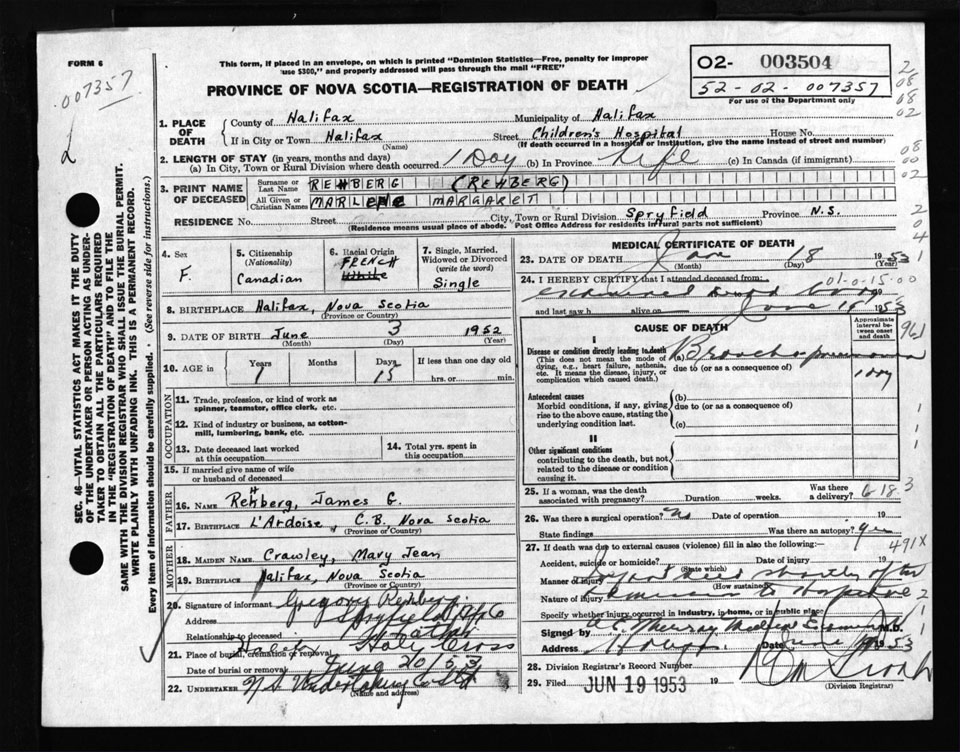 FORM 6
007357
This form, if placed in an envelope, on which is printed "Dominion Statistics—Free, penalty for improper
use $300," and properly addressed will pass through the mail "FREE"
O2- 003504
52-02-007357
For use of the Department only
PROVINCE OF NOVA SCOTIA—REGISTRATION OF DEATH
2
08
08
02
08
00
02
2
0
4
1. PLACE OF DEATH
County of Halifax Municipality of Halifax
If in City or Town Halifax Street Children's Hospital House No.
(Name) (If death occurred in a hospital or institution, give the name instead of street and number)
2. LENGTH OF STAY (in years, months and days)
(a) In City, Town or Rural Division where death occurred 1 Day (b) In Province Life (c) In Canada (if immigrant)
3. PRINT NAME OF DECEASED
Surname or Last Name REHBERG (REHBERG)
All Given or Christian Names MARLENE MARGARET
RESIDENCE No. Street City, Town or Rural Division Spryfield Province N.S.
(Residence means usual place of abode. Post Office Address for residents in rural parts not sufficient)
4. Sex
F.
5. Citizenship
(Nationality)
Canadian
6. Racial Origin
FRENCH
White
7. Single, Married,
Widowed or Divorced
(write the word)
Single
8. BIRTHPLACE Halifax, Nova Scotia
(Province or Country)
9. DATE OF BIRTH June 3 1952
(Month) (Day) (Year)
10. AGE in
Years Months Days If less than one day old
1 15 hrs. or min.
OCCUPATION
11. Trade, profession, or kind of work as
spinner, teamster, office clerk, etc.
12. Kind of industry or business, as cotton-
mill, lumbering, bank, etc.
13. Date deceased last worked
at this occupation
14. Total yrs. spent in
this occupation
15. If married give name of wife
or husband of deceased
FATHER
16. Name Rehberg, James G.
H
17. BIRTHPLACE L'Ardoise, C.B. Nova Scotia
(Province or Country)
MOTHER
18. MAIDEN NAME Crawley, Mary Jean
19. BIRTHPLACE Halifax, Nova Scotia
(Province or Country)
20. Signature of informant Gregory Rehberg
Address Spryfield
Relationship to deceased Father
21. Place of burial, cremation or removal Halifax Holy Cross
Date of burial or removal June 20/53
22. UNDERTAKER N.S. Undertaking Co Ltd
(Name and address)
MEDICAL CERTIFICATE OF DEATH
23. DATE OF DEATH June 18 1953
(Month) (Day) (Year)
24. I HEREBY CERTIFY that I attended deceased from:
01-0-15-00
and last saw h alive on June 18 1953
CAUSE OF DEATH
Approximate
interval be-
tween onset
and death
I
Disease or condition directly leading to death
(This does not mean the mode of
dying, e.g., heart failure, asthenia,
etc. It means the disease, injury, or
complication which caused death.)
(a) Bronchopneumonia
due to (or as a consequence of)
1 day
Antecedent causes
Morbid conditions, if any, giving
rise to the above cause, stating the
underlying condition last.
(b)
due to (or as a consequence of)
(c)
II
Other significant conditions
contributing to the death, but not
related to the disease or condition
causing it.
1
961
1
1
1
3
25. If a woman, was the death
associated with pregnancy? Duration weeks. Was there
a delivery? 6-18
26. Was there a surgical operation? No Date of operation 19
State findings Was there an autopsy? yes
491X
27. If death was due to external causes (violence) fill in also the following:—
Accident, suicide or homicide? Date of injury 19
(State which)
Manner of injury shortly after
(How sustained)
Nature of injury admission to Hospital
Specify whether injury occurred in industry, in home, or in public place
2
1
1
Signed by Murray Medical Examiner M.D.
Address Halifax Date June 1953
28. Division Registrar's Record Number
29. Filed JUN 19 1953 19
(Division Registrar)
SEC. 46—VITAL STATISTICS ACT MAKES IT THE DUTY
OF THE UNDERTAKER OR PERSON ACTING AS UNDER-
TAKER TO OBTAIN ALL THE PARTICULARS REQUIRED
IN THE "REGISTRATION OF DEATH" AND TO FILE THE
SAME WITH THE DIVISION REGISTRAR WHO SHALL ISSUE THE BURIAL PERMIT.
WRITE PLAINLY WITH UNFADING INK. THIS IS A PERMANENT RECORD.
Every item of information should be carefully supplied. (See reverse side for instructions.)